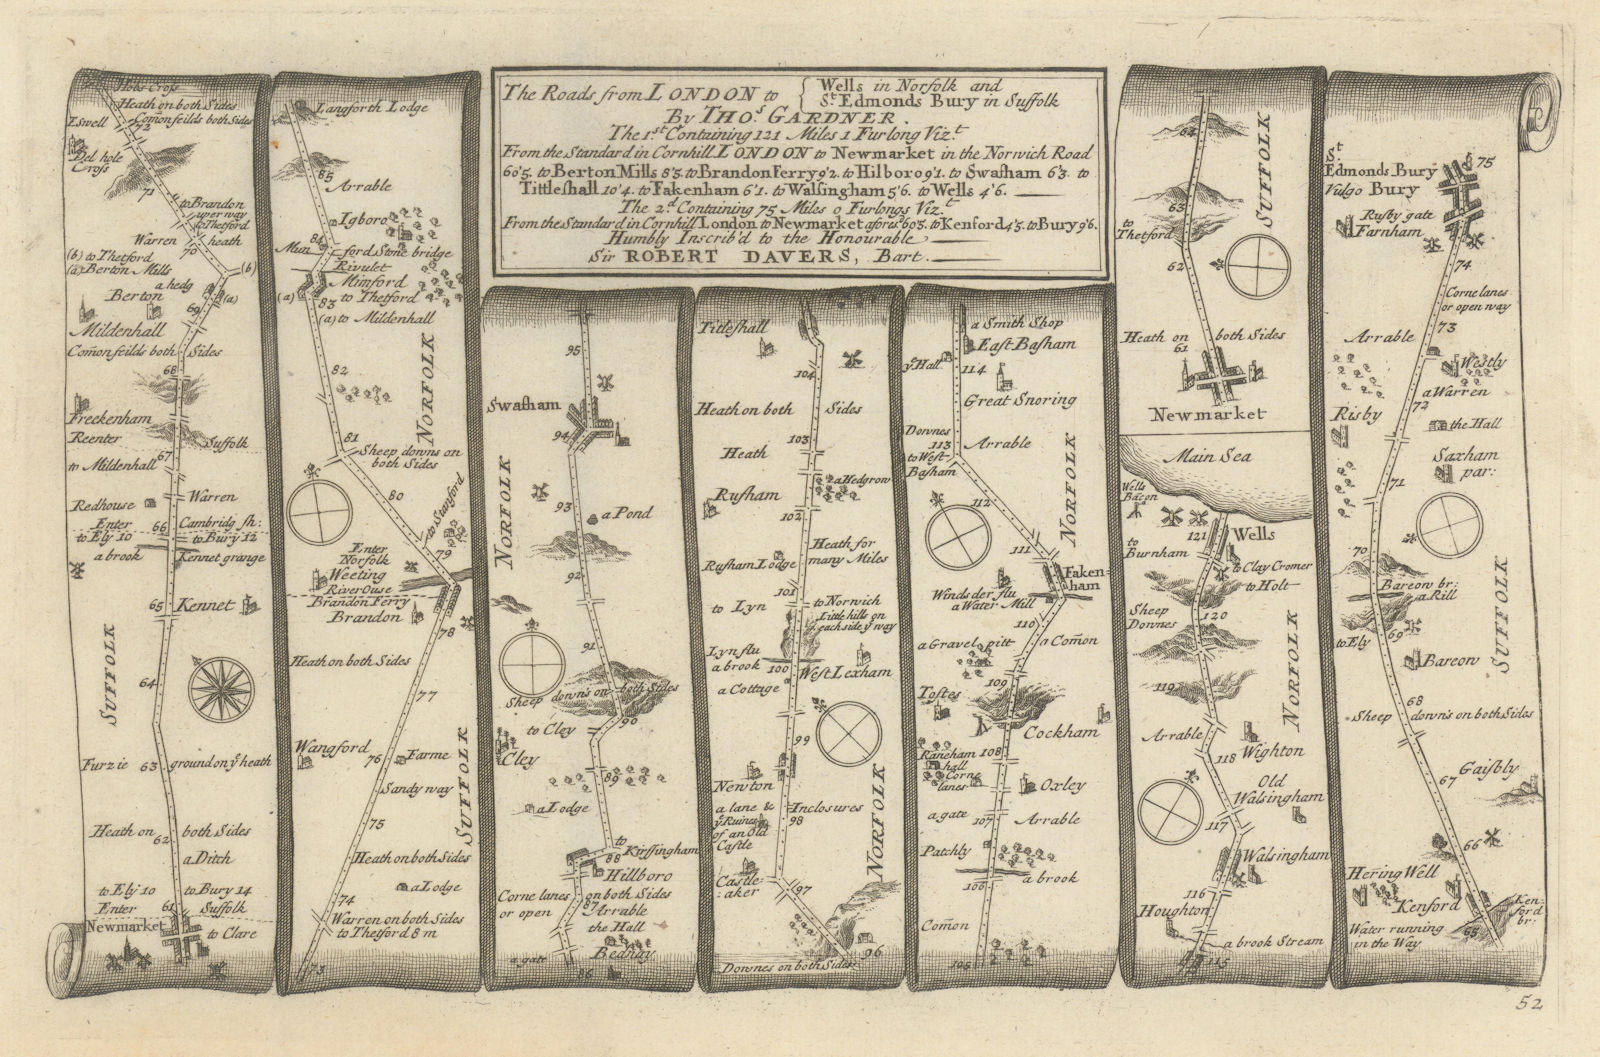 The Roads from LONDON to { Wells in Norfolk and
St Edmonds Bury in Suffolk
By THOs GARDNER.
The 1st Containing 121 Miles 1 Furlong Vizt
From the Standard in Cornhill LONDON to Newmarket in the Norwich Road
60'5. to Berton Mills 8'3. to Brandon Ferry 9'2. to Hilboro 9'1. to Swafham 6'3. to
Tittleshall 10'4. to Fakenham 6'1. to Walsingham 5'6. to Wells 4'6.
The 2d Containing 75 Miles 0 Furlongs Vizt
From the Standard in Cornhill London to Newmarket aforesd 60'5. to Kenford 4'5. to Bury 9'6.
Humbly Inscrib'd to the Honourable
Sir ROBERT DAVERS, Bart.
Hobs Cross
Heath on both Sides
Comon feilds both Sides
Iswell
72
Del hole
Cross
71
to Brandon
uper way
to Thetford
Warren heath
70
(b) to Thetford
(a) Berton Mills
(b)
a hedg
(a)
Berton
69
Mildenhall
Comon feilds both Sides
68
Freckenham
Reenter Suffolk
67
to Mildenhall
Warren
Redhouse
66
Enter Cambridg sh:
to Ely 10 to Bury 12
a brook Kennet grange
65
Kennet
SUFFOLK
64
Furzie 63 ground on ye heath
Heath on both Sides
62
a Ditch
to Ely 10 to Bury 14
Enter 61 Suffolk
Newmarket
to Clare
Langforth Lodge
85
Arrable
Igboro
84
Mun ford Stone bridge
Rivulet
Mimford
(a) to Thetford
83
(a) to Mildenhall
NORFOLK
82
81
Sheep downs on
both Sides
80
to Stanford
79
Enter
Norfolk
Weeting
River Ouse
Brandon Ferry
Brandon
78
Heath on both Sides
77
SUFFOLK
Wangford
76
Farme
Sandy way
75
Heath on both Sides
a Lodge
74
Warren on both Sides
to Thetford 8 m
73
95
Swafham
94
NORFOLK
93
a Pond
92
91
Sheep downs on both Sides
90
to Cley
Cley
89
a Lodge
to
Kirssingham
88
Hillboro
Corne lanes on both Sides
or open 87 Arrable
the Hall
Bednay
a gate
86
Titleshall
104
Heath on both Sides
103
Heath
a Hedgrow
Rusham
102
Heath for
many Miles
Rusham Lodge
101
to Lyn to Norwich
Little hills on
each side ye way
Lyn flu
a brook 100
West Lexham
a Cottage
99
NORFOLK
Newton
a lane & Inclosures
ye Ruines 98
of an Old
Castle
Castle
aker
97
96
Downes on both Sides
a Smith Shop
East Basham
ye Hall
114
Great Snoring
Downes
113 Arrable
to West
Basham
112
NORFOLK
111
Faken-
ham
Winds der flu
a Water Mill
110
a Gravel pitt a Comon
109
Toftes
Cockham
Raneham
hall 108
Corne
lanes
Oxley
a gate 107 Arrable
Patchly
a brook
106
Comon
105
64
SUFFOLK
63
to
Thetford
62
Heath on both Sides
61
Newmarket
Main Sea
Wells
Bacon
121 Wells
to
Burnham
to Clay Cromer
to Holt
Sheep
Downes
120
119
NORFOLK
Arrable
Wighton
118
Old
Walsingham
117
Walsingham
116
Houghton
a brook Stream
115
St
Edmonds Bury 75
Vulgo Bury
Rusby gate
Farnham
74
Corne lanes
or open way
73
Arrable
Westly
a Warren
72
Risby
the Hall
Saxham
par:
71
70
Bareow br:
a Rill
SUFFOLK
to Ely 69
Bareow
68
Sheep downs on both Sides
67
Gaisbly
66
Hering Well
Kenford
Ken-
ford
br:
65
Water running
in the Way
52